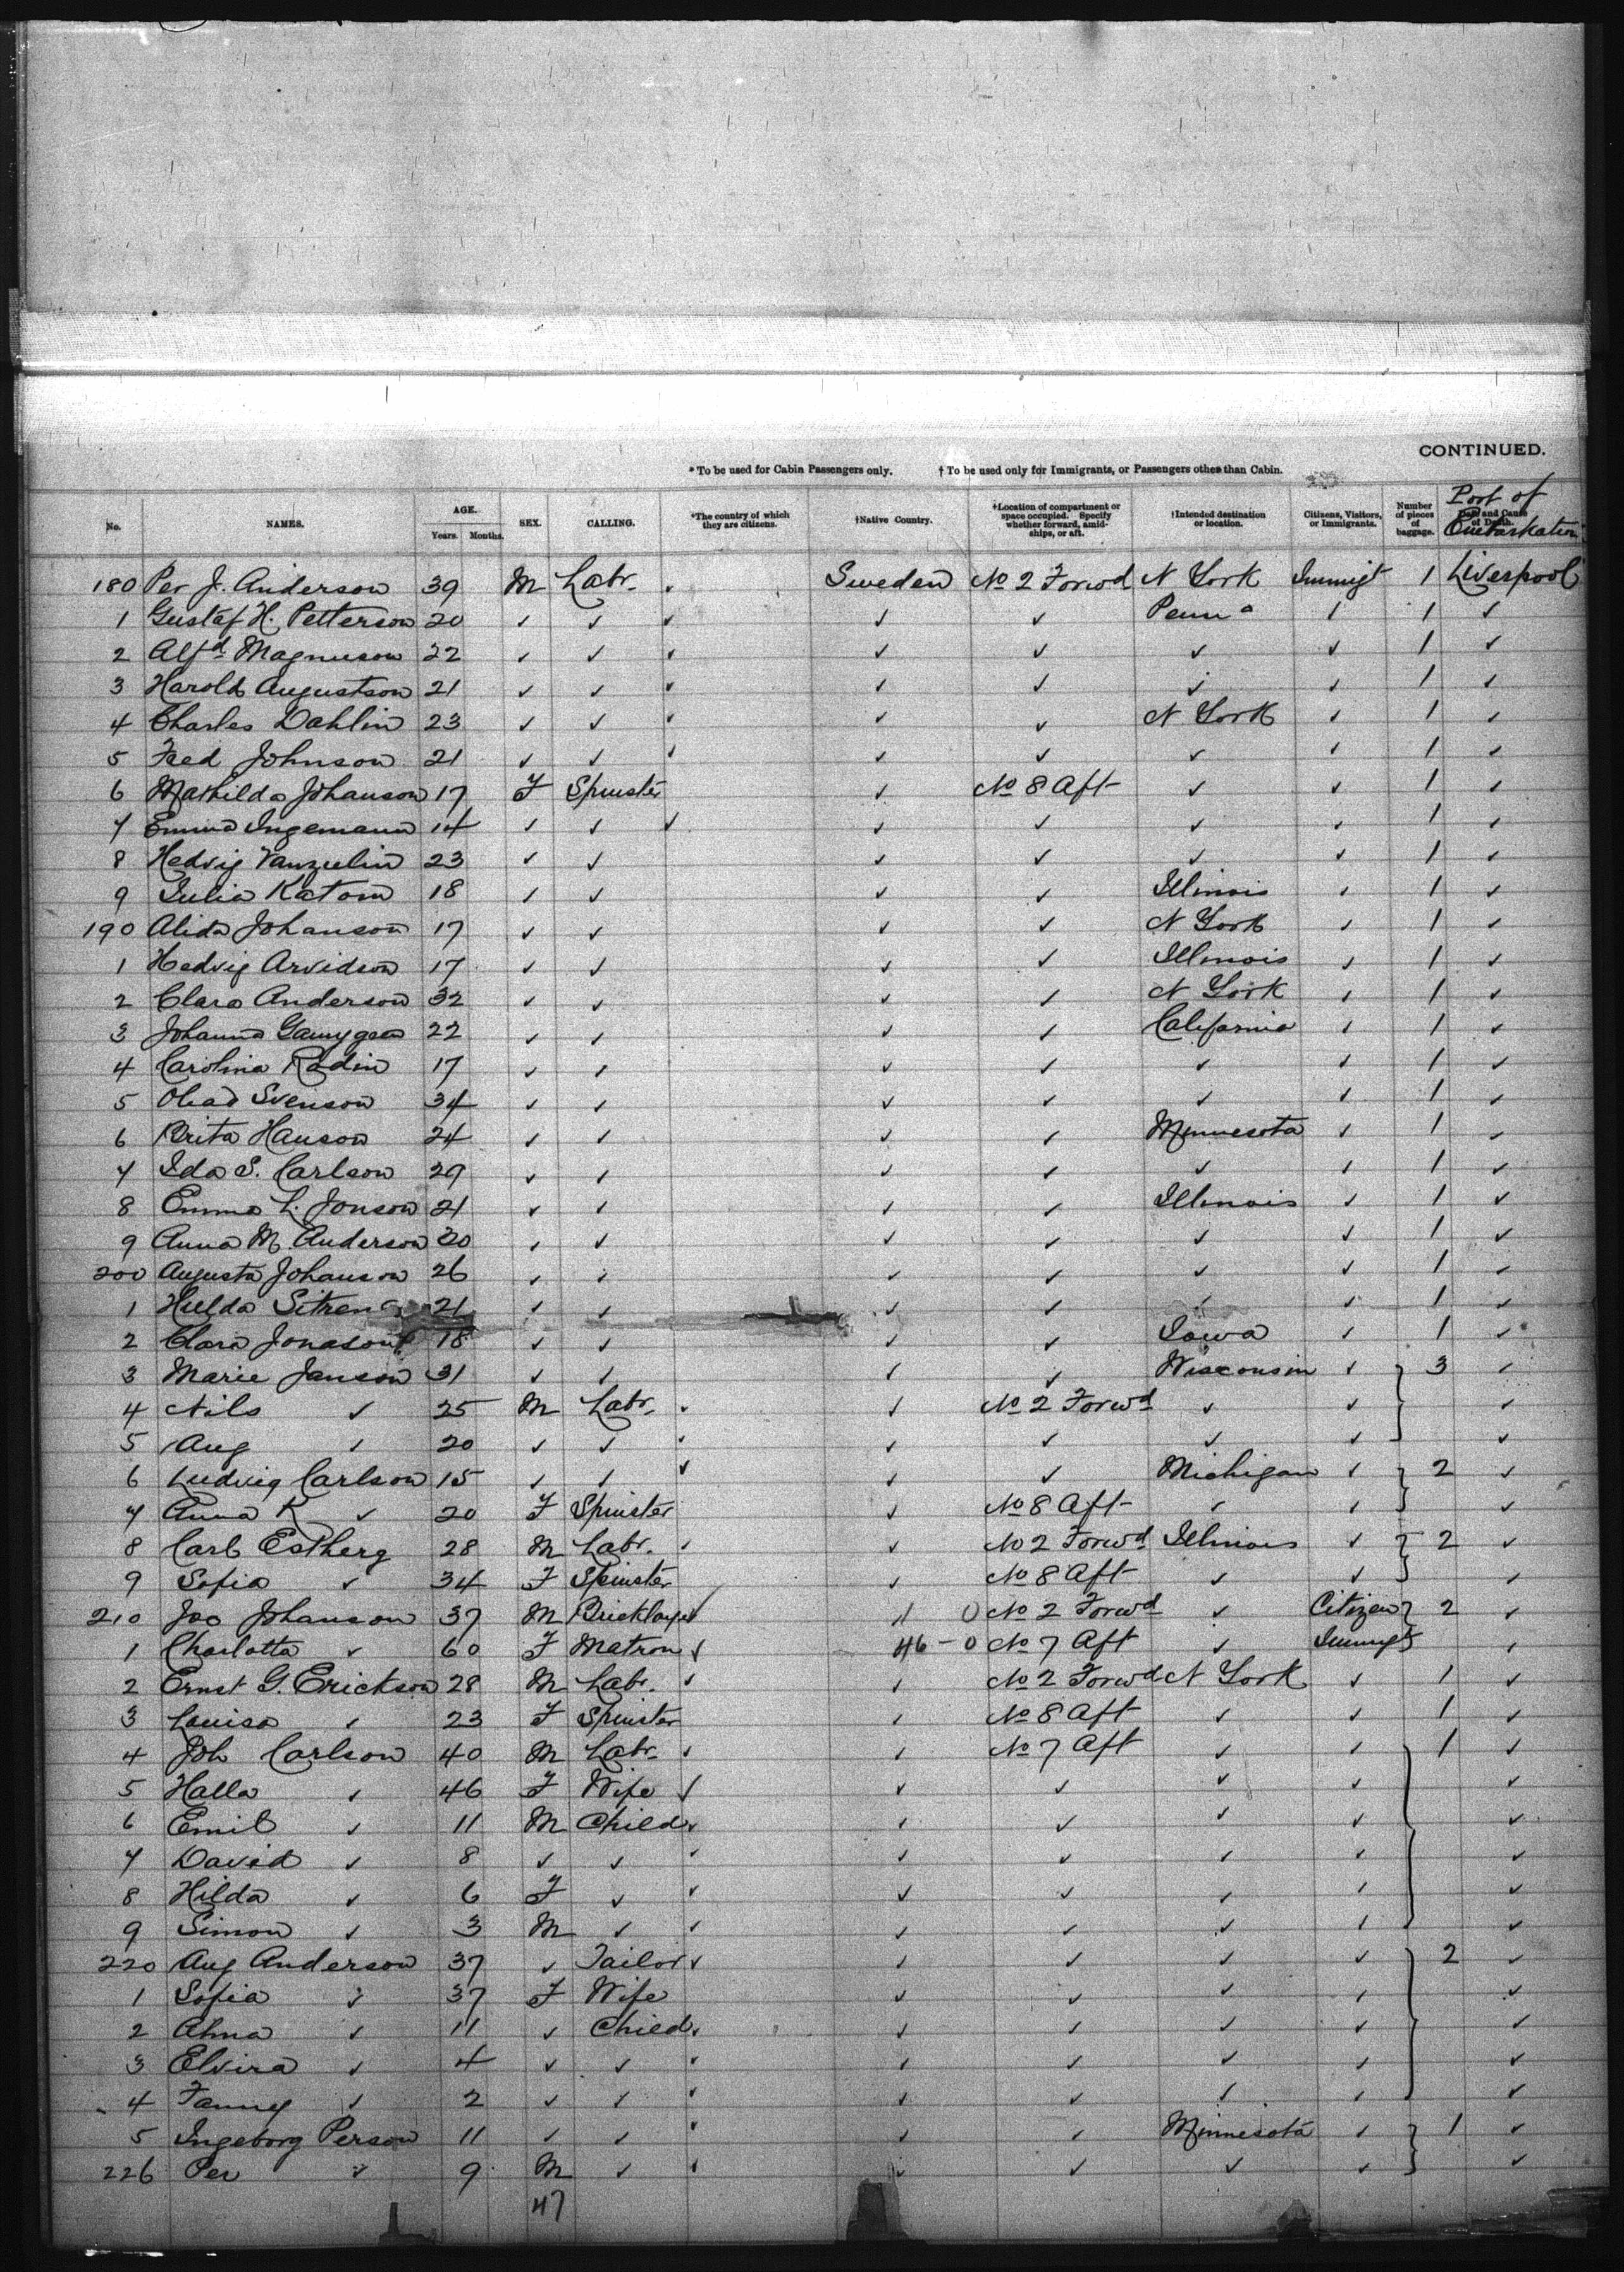 CONTINUED.
* To be used for Cabin Passengers only. † To be used only for Immigrants, or Passengers other than Cabin.
No. NAMES. AGE. Years. Months. SEX. CALLING. *The country of which they are citizens. †Native Country. †Location of compartment or space occupied. Specify whether forward, amidships, or aft. †Intended destination or location. Citizens, Visitors, or Immigrants. Number of pieces of baggage. Date and Cause of Death. Port of Embarkation
180 Per J. Anderson 39 M Labr. Sweden No 2 Forwd N York Immigt 1 Liverpool
1 Gustaf H. Petterson 20 ✓ ✓ ✓ ✓ ✓ Penna 1 1 ✓
2 Alfd Magnuson 22 ✓ ✓ ✓ ✓ ✓ ✓ ✓ 1 ✓
3 Harold Augustson 21 ✓ ✓ ✓ ✓ ✓ ✓ ✓ 1 ✓
4 Charles Dahlin 23 ✓ ✓ ✓ ✓ ✓ N York ✓ 1 ✓
5 Fred Johnson 21 ✓ ✓ ✓ ✓ ✓ ✓ ✓ 1 ✓
6 Mathilda Johanson 17 F Spinster ✓ No 8 Aft ✓ ✓ 1 ✓
7 Emma Ingemann 14 ✓ ✓ ✓ ✓ ✓ ✓ ✓ 1 ✓
8 Hedvig 23 ✓ ✓ ✓ ✓ ✓ ✓ 1 ✓
9 Julia Katom 18 ✓ ✓ ✓ ✓ Illinois ✓ 1 ✓
190 Alida Johanson 17 ✓ ✓ ✓ ✓ N York ✓ 1 ✓
1 Hedvig Arvidson 17 ✓ ✓ ✓ ✓ Illinois ✓ 1 ✓
2 Clara Anderson 32 ✓ ✓ ✓ ✓ N York ✓ 1 ✓
3 Johanna 22 ✓ ✓ ✓ ✓ California ✓ 1 ✓
4 Carolina Rodin 17 ✓ ✓ ✓ ✓ ✓ ✓ 1 ✓
5 Svenson 34 ✓ ✓ ✓ ✓ ✓ ✓ 1 ✓
6 Brita Hanson 24 ✓ ✓ ✓ ✓ Minnesota ✓ 1 ✓
7 Ida S. Carlson 29 ✓ ✓ ✓ ✓ ✓ ✓ 1 ✓
8 Emma L. Jonson 21 ✓ ✓ ✓ ✓ Illinois ✓ 1 ✓
9 Anna M. Anderson 20 ✓ ✓ ✓ ✓ ✓ ✓ 1 ✓
200 Augusta Johanson 26 ✓ ✓ ✓ ✓ ✓ ✓ 1 ✓
1 Hulda 21 ✓ ✓ ✓ ✓ ✓ ✓ 1 ✓
2 Clara Jonason 18 ✓ ✓ ✓ ✓ Iowa ✓ 1 ✓
3 Marie Janson 31 ✓ ✓ ✓ ✓ Wisconsin ✓ 3 ✓
4 Nils ✓ 25 M Labr. ✓ No 2 Forwd ✓ ✓ ✓
5 Aug ✓ 20 ✓ ✓ ✓ ✓ ✓ ✓ ✓ ✓
6 Ludvig Carlson 15 ✓ ✓ ✓ ✓ ✓ Michigan ✓ 2 ✓
7 Anna K ✓ 20 F Spinster ✓ No 8 Aft ✓ ✓ ✓
8 Carl Estberg 28 M Labr. ✓ ✓ No 2 Forwd Illinois ✓ 2 ✓
9 Sofia ✓ 34 F Spinster ✓ No 8 Aft ✓ ✓ ✓
210 Jno Johanson 37 M Bricklayer ✓ 0 No 2 Forwd ✓ Citizen 2 ✓
1 Charlotta ✓ 60 F Matron ✓ 46-0 No 7 Aft ✓ Immigt ✓
2 Ernst G. Erickson 28 M Labr. ✓ ✓ No 2 Forwd N York ✓ 1 ✓
3 Louisa ✓ 23 F Spinster ✓ No 8 Aft ✓ ✓ 1 ✓
4 Joh Carlson 40 M Labr. ✓ ✓ No 7 Aft ✓ ✓ 1 ✓
5 Halla ✓ 46 F Wife ✓ ✓ ✓ ✓ ✓ ✓
6 Emil ✓ 11 M Child ✓ ✓ ✓ ✓ ✓ ✓
7 David ✓ 8 ✓ ✓ ✓ ✓ ✓ ✓ ✓ ✓
8 Hilda ✓ 6 F ✓ ✓ ✓ ✓ ✓ ✓ ✓
9 Simon ✓ 3 M ✓ ✓ ✓ ✓ ✓ ✓ ✓
220 Aug Anderson 37 ✓ Tailor ✓ ✓ ✓ ✓ ✓ 2 ✓
1 Sofia ✓ 37 F Wife ✓ ✓ ✓ ✓ ✓
2 Alma ✓ 11 ✓ Child ✓ ✓ ✓ ✓ ✓ ✓
3 Elvira ✓ 4 ✓ ✓ ✓ ✓ ✓ ✓ ✓ ✓
4 Fanny ✓ 2 ✓ ✓ ✓ ✓ ✓ ✓ ✓ ✓
5 Ingeborg Person 11 ✓ ✓ ✓ ✓ ✓ Minnesota ✓ 1 ✓
226 Per ✓ 9 M ✓ ✓ ✓ ✓ ✓ ✓ ✓
47